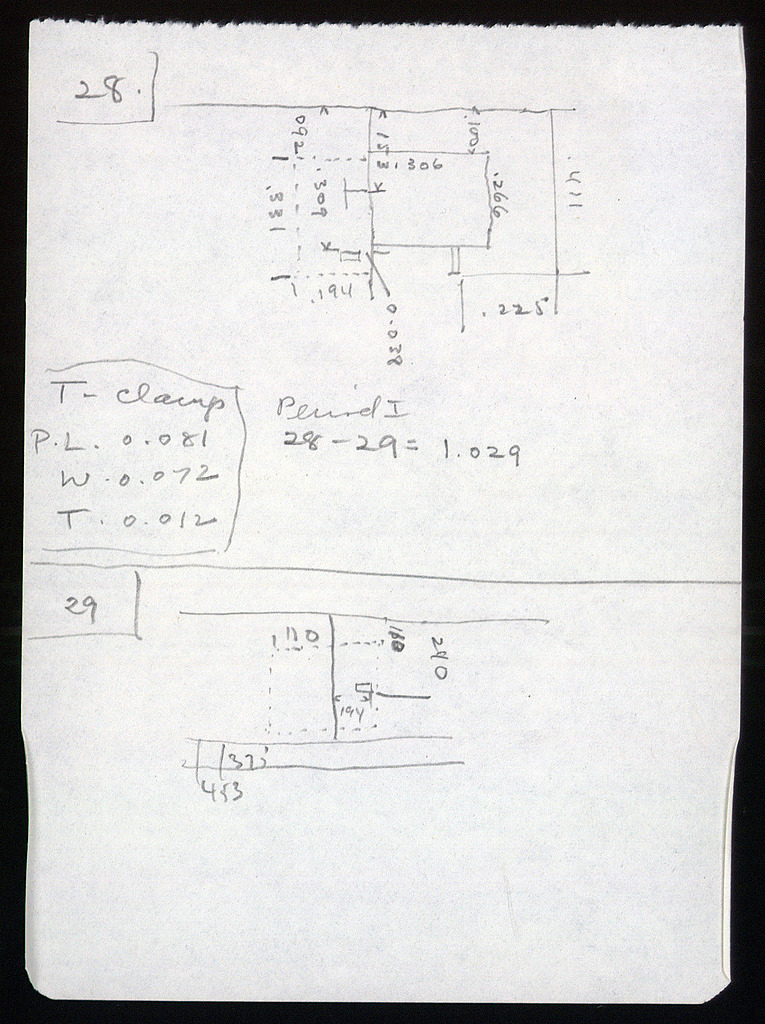 28.
092
.153
.100
.306
.309
.266
.411
.331
.194
0.038
.225
T- clamp
P.L. 0.081
W. 0.072
T. 0.012
Period I
28-29= 1.029
29
.110
180
240
.194
453